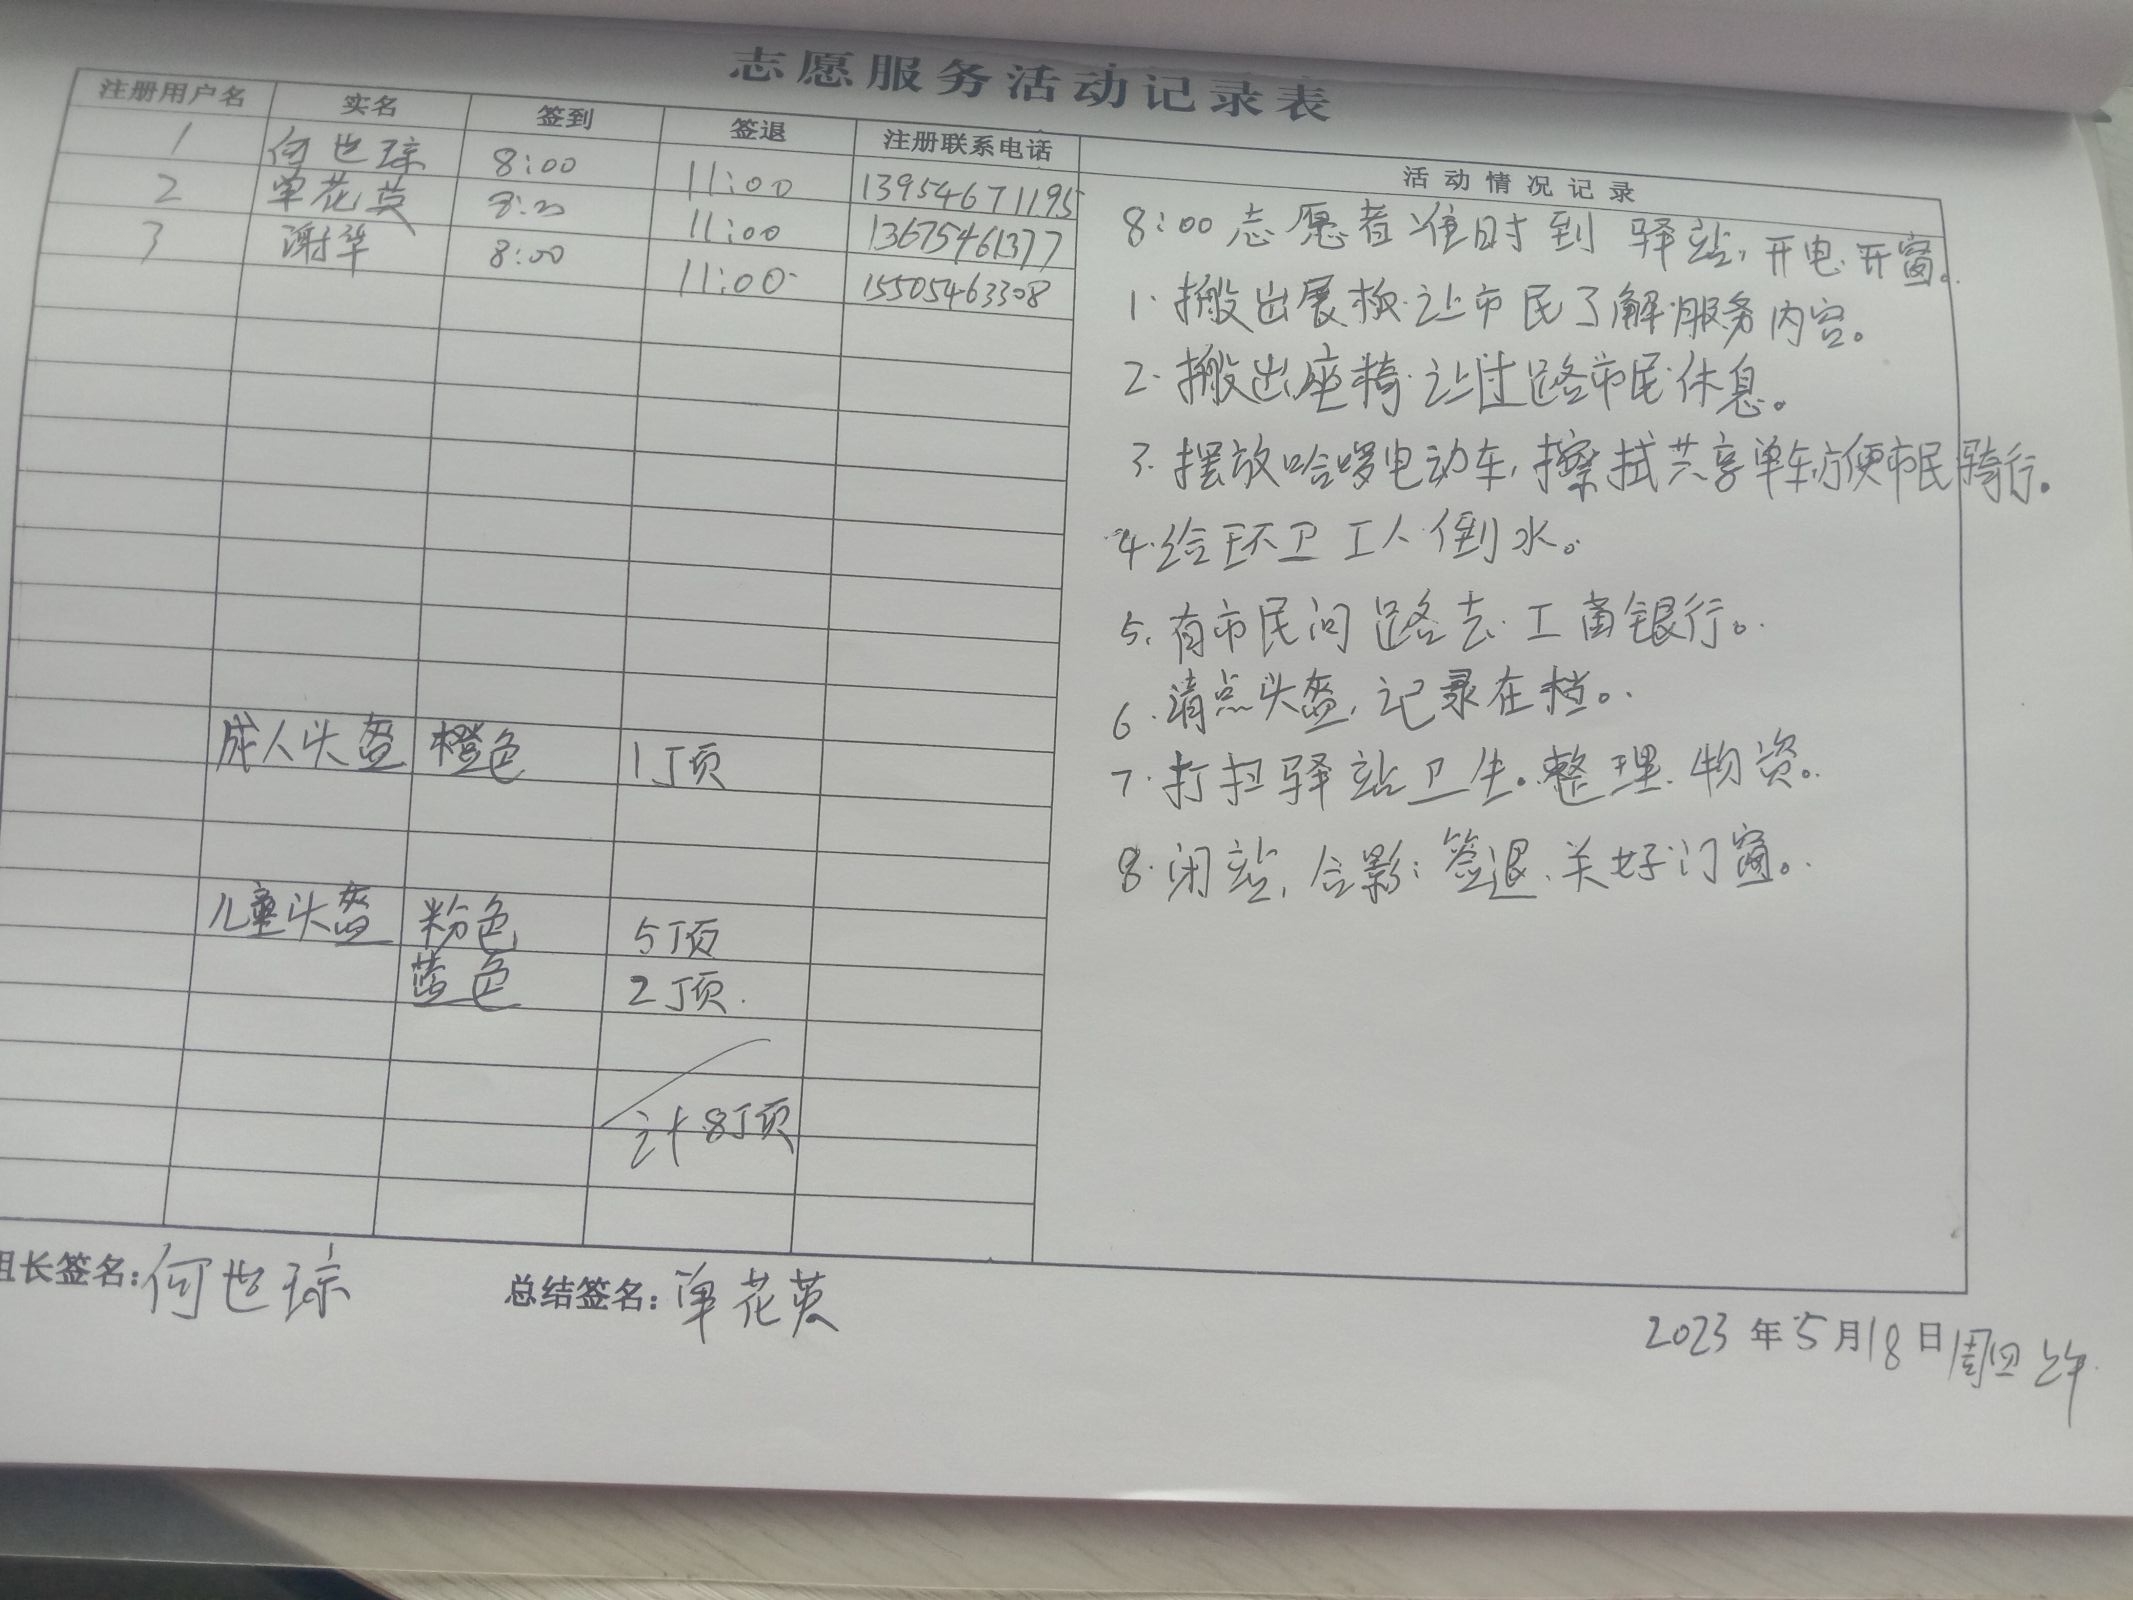 志愿服务活动记录表
注册用户名 实名 签到 签退 注册联系电话 活动情况记录
1 何世琼 8:00 11:00 13954671195
2 单花英 8:00 11:00 13675461377
3 谢华 8:00 11:00 15505463308
8:00志愿者准时到驿站,开电.开窗。
1.搬出展板.让市民了解服务内容。
2.搬出座椅.让过路市民休息。
3.摆放哈啰电动车,擦拭共享单车,方便市民骑行。
4.给环卫工人倒水。
5.有市民问路去工商银行。
6.清点头盔,记录在档。
7.打扫驿站卫生。整理物资。
8.闭站,合影;签退.关好门窗。
成人头盔 橙色 1顶
儿童头盔 粉色 5顶
蓝色 2顶.
计8顶
组长签名:何世琼 总结签名:单花英
2023年5月18日周四上午